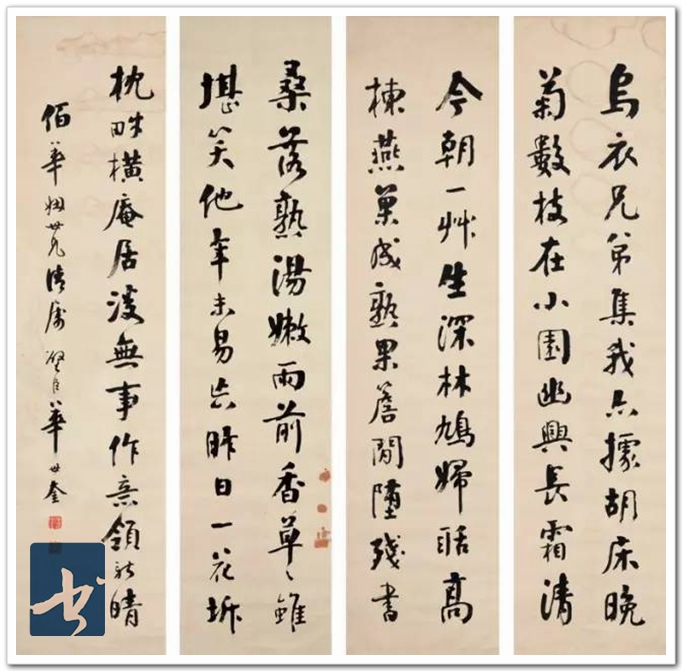 烏衣兄弟集我亦據胡床晚
菊數枝在小園幽興長霜清
今朝一艸生深林鳩婦聒高
棟燕巢成熟果簷間墮殘書
桑落熟湯嫩雨前香草〻雖
堪笑他年未易忘昨日一花坼
枕畔橫庵居復無事作意領新晴
佰華姻世兄清屬 璧臣華世奎
书